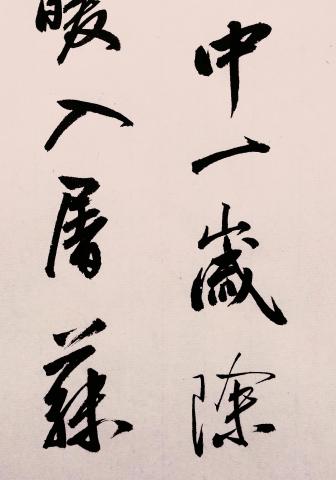 中一歲除
暖入屠蘇